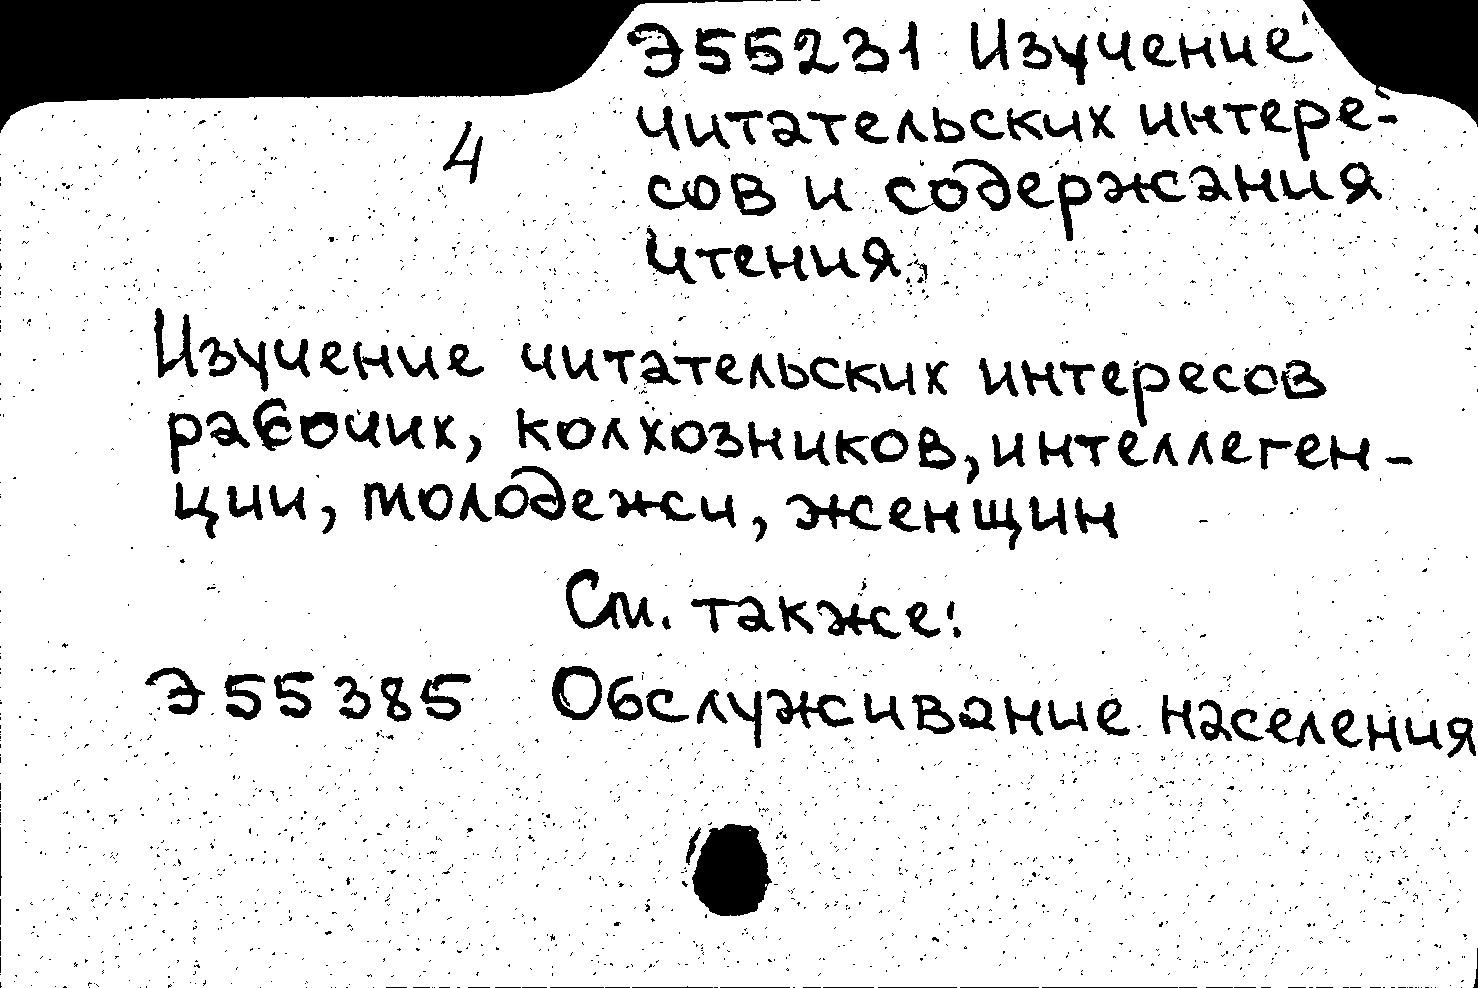 Э55231 Изучение
читательских интере-
4
сов и содержания
чтения.
Изучение читательских интересов
рабочих, колхозников, интеллеген-
ции, молодежи, женщин
См. также:
Э55385 Обслуживание населения